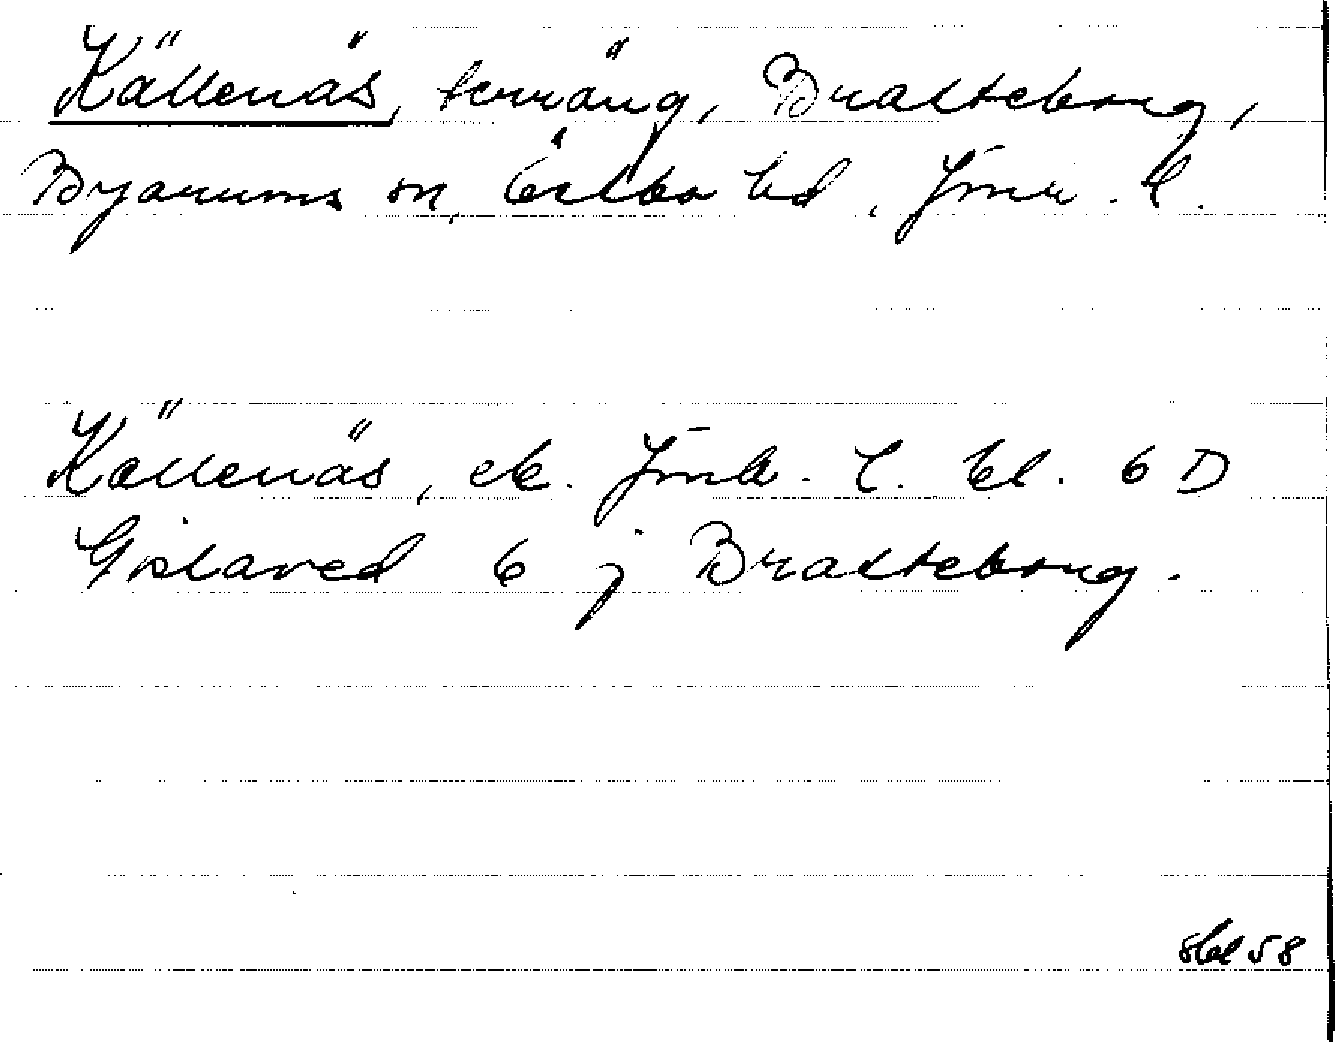 Källenäs, terräng, Bratteborg,
Byarums sn, Östbo hd, Jönk. l.
Källenäs, ek. Jönk. l. bl. 6 D
Gislaved 6 j Bratteborg.
58